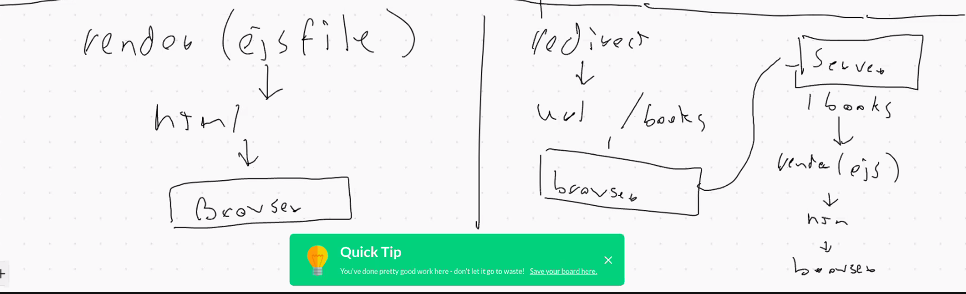 render (ejsfile)
html
Browser
redirect
url /books
browser
Server
/books
render(ejs)
htm
browser
Quick Tip
You've done pretty good work here - don't let it go to waste! Save your board here.